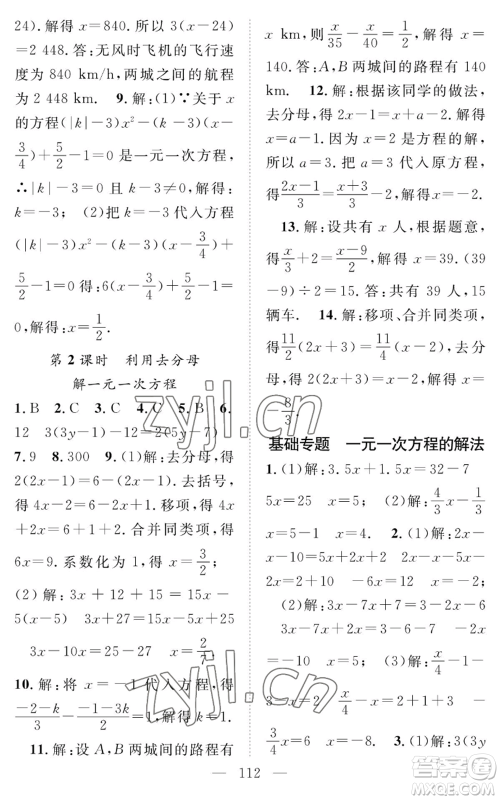 24). 解得 x=840. 所以 3(x-24)
=2 448. 答：无风时飞机的飞行速
度为 840 km/h，两城之间的航程
为 2 448 km. 9. 解：(1)∵关于 x
的方程(|k|-3)x²-(k-3)(x-
3/4)+5/2-1=0 是一元一次方程，
∴|k|-3=0 且 k-3≠0，解得：
k=-3；(2)把 k=-3 代入方程
(|k|-3)x²-(k-3)(x-3/4)+
5/2-1=0 得：6(x-3/4)+5/2-1
=0，解得：x=1/2.
第 2 课时 利用去分母
解一元一次方程
1. B 2. C 3. B 4. B 5. B 6.
12 3(3y-1)-12=2(5y-7)
7. 9 8. 300 9. 解：去分母，得
2(2x-1)=2(x-1)+6. 去括号，
得 4x-2=2x-2+6. 移项，得
4x-2x=-2+6+2. 合并同类项，得
6x=9. 系数化为 1，得 x=3/2
(2)解：3x+12+15x=15x-
5(x-5) 3x+27=15x-5x+25
3x-10x=25-27 x=2/7
10. 解：将 x=-1代入方程，得
(-2-k)/3-(-1-3k)/2=1，解得：k=1.
11. 解：设 A，B 两城间的路程有
x km，则 x/35-x/40=1/2，解得：x=
140. 答：A，B 两城间的路程有 140
km. 12. 解：根据该同学的做法，
去分母，得 2x-1=x+a-2. 解得
x=a-1. 因为 x=2 是方程的解，
所以 a=3. 把 a=3 代入原方程，
得(2x-1)/3=(x+3)/3-2，解得 x=-2.
13. 解：设共有 x 人，根据题意，
得 x/3+2=(x-9)/2，解得 x=39. (39
-9)÷2=15. 答：共有 39 人，15
辆车. 14. 解：移项、合并同类项，
得 11/2(2x+3)=11/4(x-2)，解得 x=
-8/3.
基础专题 一元一次方程的解法
1. (1)解：3.5x+1.5x=32-7
5x=25 x=5 (2)解：4/3x-1/3
x=5-1 x=4 2. (1)解：2x-
x-10=5x+2x+2 2x-x-5x-
2x=2+10 -6x=12 x=-2
(2)解：2x-7x+7=3x-2x-6
-3-3x 2x-7x-3x+2x+3x
=-6-3-7 -3x=-6
x=-10 x=5 (3)解：x/4-1-
3-x=2 x/4-x=2+1+3 -3/4x=6 x=-8 3. (1)解：3(3y
112